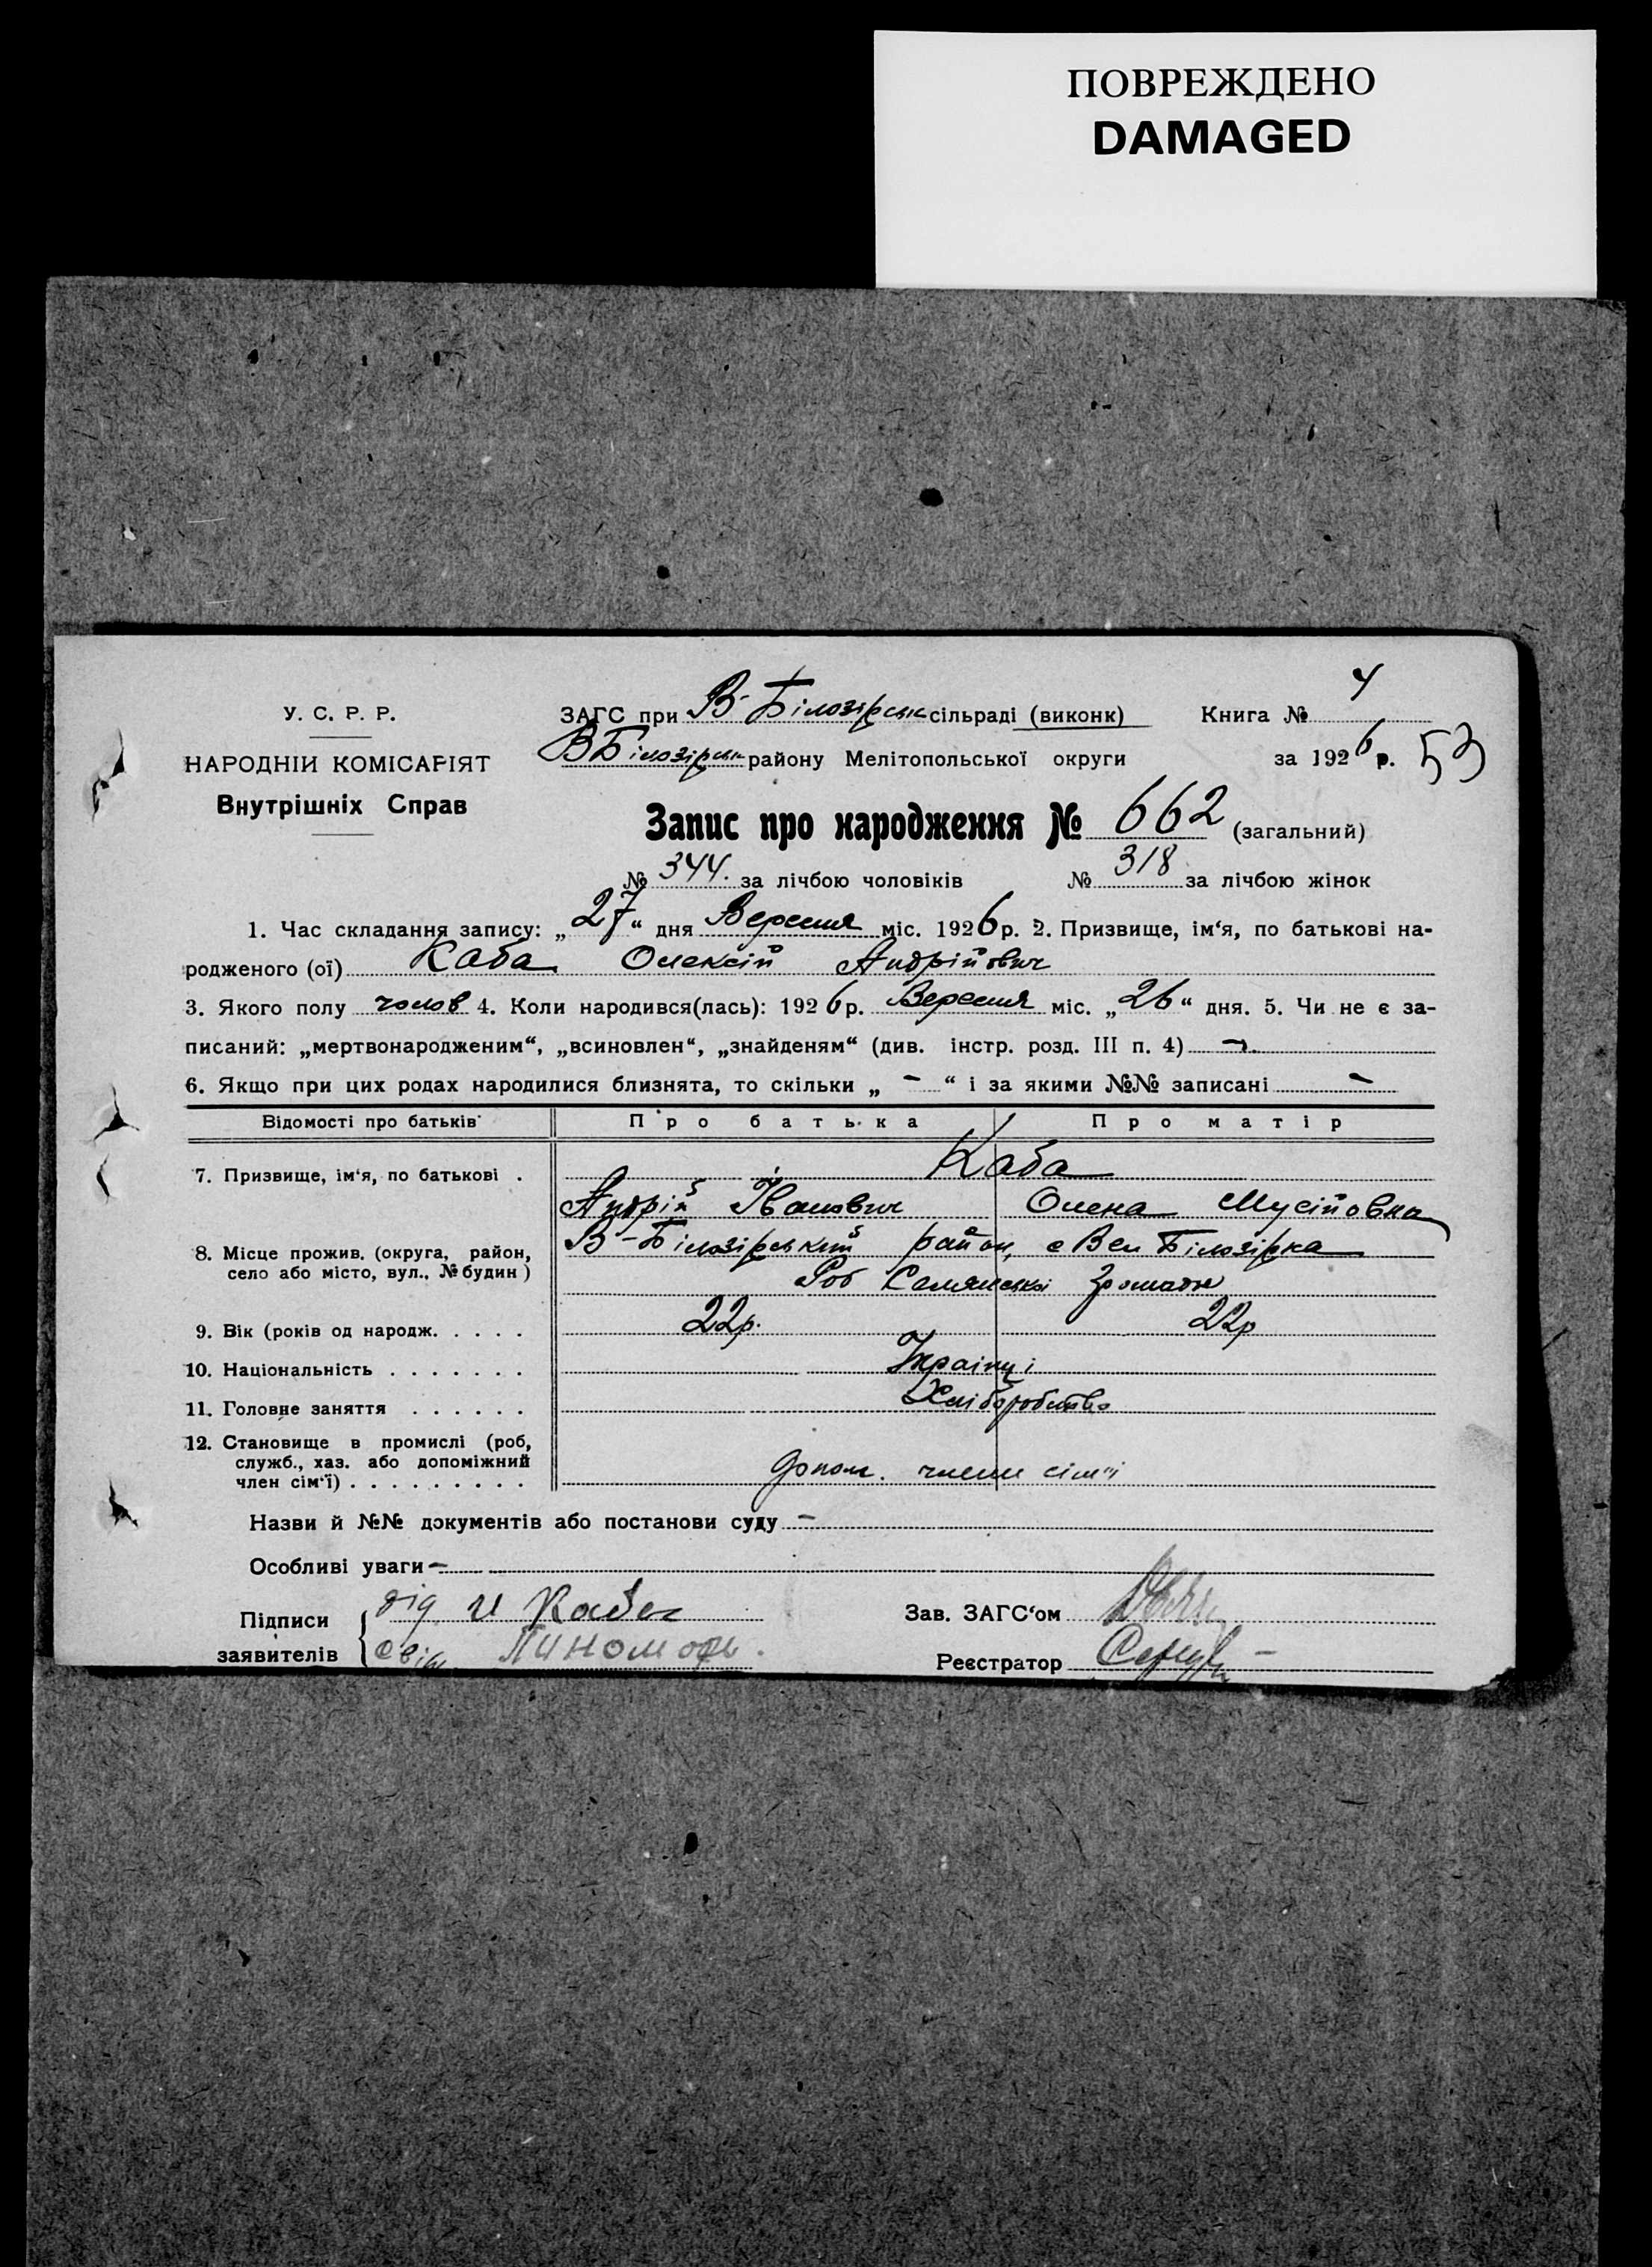 ПОВРЕЖДЕНО
DAMAGED
У. С. Р. Р.
НАРОДНІЙ КОМІСАРІЯТ
Внутрішніх Справ
ЗАГС при В-Білозірськ сільраді (виконк)
Книга № 4
ВБілозірськ району Мелітопольської округи
за 1926 р. 53
Запис про народження № 662 (загальний)
№ 344. за лічбою чоловіків № 318 за лічбою жінок
1. Час складання запису: „27“ дня Вересня міс. 1926 р. 2. Призвище, ім‘я, по батькові на-
родженого (ої) Каба Олексій Андрійович
3. Якого полу чолов 4. Коли народився(лась): 1926 р. Вересня міс. „26“ дня. 5. Чи не є за-
писаний: „мертвонародженим“, „всиновлен“, „знайденям“ (див. інстр. розд. III п. 4) -
6. Якщо при цих родах народилися близнята, то скільки „ - “ і за якими №№ записані -
Відомості про батьків Про батька Про матір
7. Призвище, ім‘я, по батькові . Каба
Андрій Іванович Олена Мусійовна
8. Місце прожив. (округа, район, село або місто, вул., № будин) В-Білозірський район, с Вел Білозірка
Селянської громади
9. Вік (років од народж. . . . . 22р. 22р
10. Національність . . . . . . . Українці
11. Головне заняття . . . . . . Хліборобство
12. Становище в промислі (роб,
служб., хаз. або допоміжний
член сім‘ї) . . . . . . . . . допом. члени сім'ї
Назви й №№ документів або постанови суду -
Особливі уваги -
Підписи
заявителів
дід И Каба
Зав. ЗАГС‘ом
Реєстратор